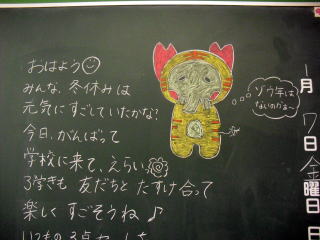 おはよう
みんな、冬休みは
元気にすごしていたかな?
今日、がんばって
学校に来て、えらい
3学きも 友だちと たすけ合って
楽しく すごそうね♪
ゾウ年は
ないのかな〜
一月
7日
金曜日
日